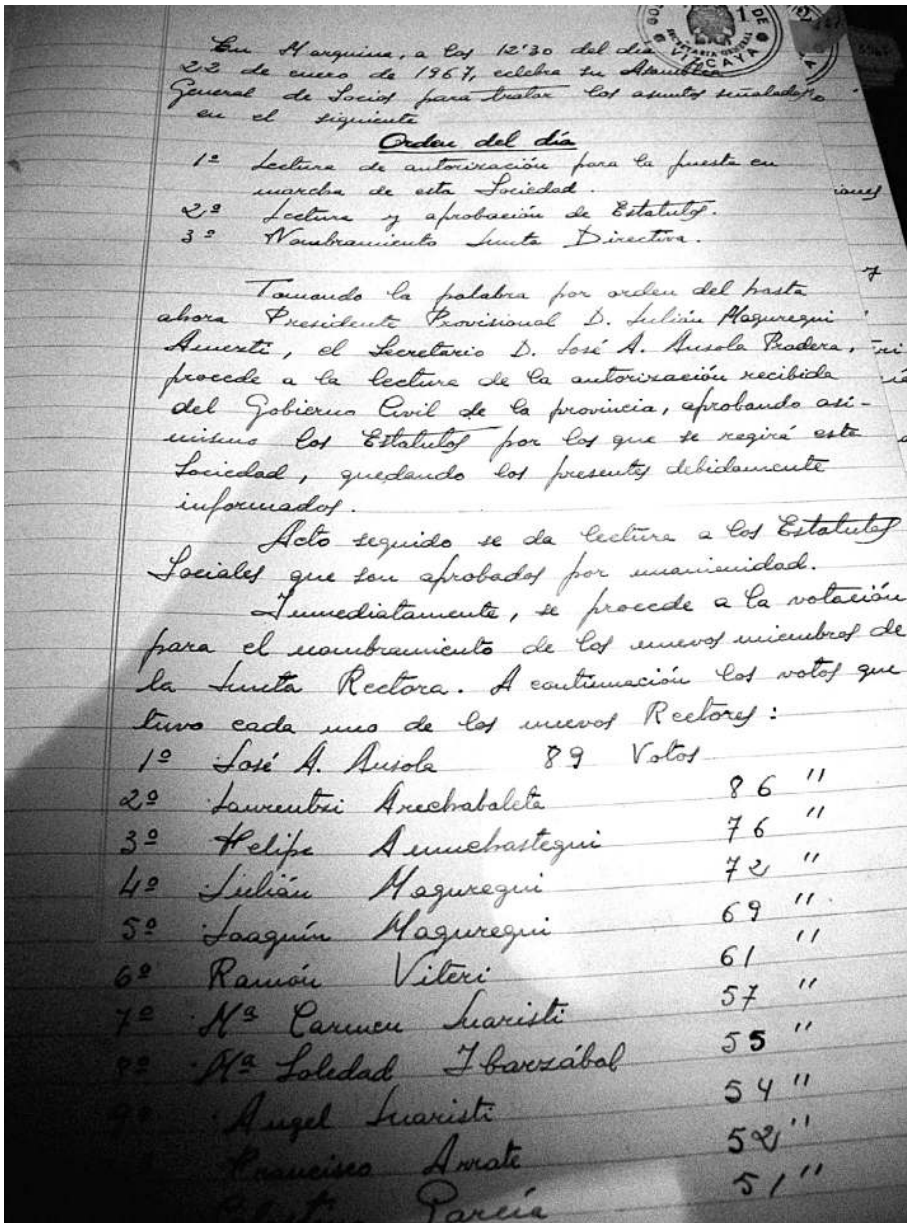 En Marquina, a las 12'30 del día
22 de enero de 1967, celebra su Asamblea
General de Socios para tratar los asuntos señalados
en el siguiente
Orden del día
1º Lectura de autorización para la puesta en
marcha de esta Sociedad.
2º Lectura y aprobación de Estatutos.
3º Nombramiento Junta Directiva.
Tomando la palabra por orden del hasta
ahora Presidente Provisional D. Julián Maguregui
Amezti, el Secretario D. José A. Ansola Pradera,
procede a la lectura de la autorización recibida
del Gobierno Civil de la provincia, aprobando asi-
mismo los Estatutos por los que se regirá esta
Sociedad, quedando los presentes debidamente
informados.
Acto seguido se da lectura a los Estatutos
Sociales que son aprobados por unanimidad.
Inmediatamente, se procede a la votación
para el nombramiento de los nuevos miembros de
la Junta Rectora. A continuación los votos que
tuvo cada uno de los nuevos Rectores:
1º José A. Ansola 89 Votos
2º Laurentxi Arechabaleta 86 "
3º Felipe Amuchastegui 76 "
4º Julián Maguregui 72 "
5º Joaquín Maguregui 69 "
6º Ramón Viteri 61 "
7º Mª Carmen Juaristi 57 "
8º Mª Soledad Ibarzábal 55 "
9º Angel Juaristi 54 "
Francisco Arrate 52 "
García 51 "
VIZCAYA